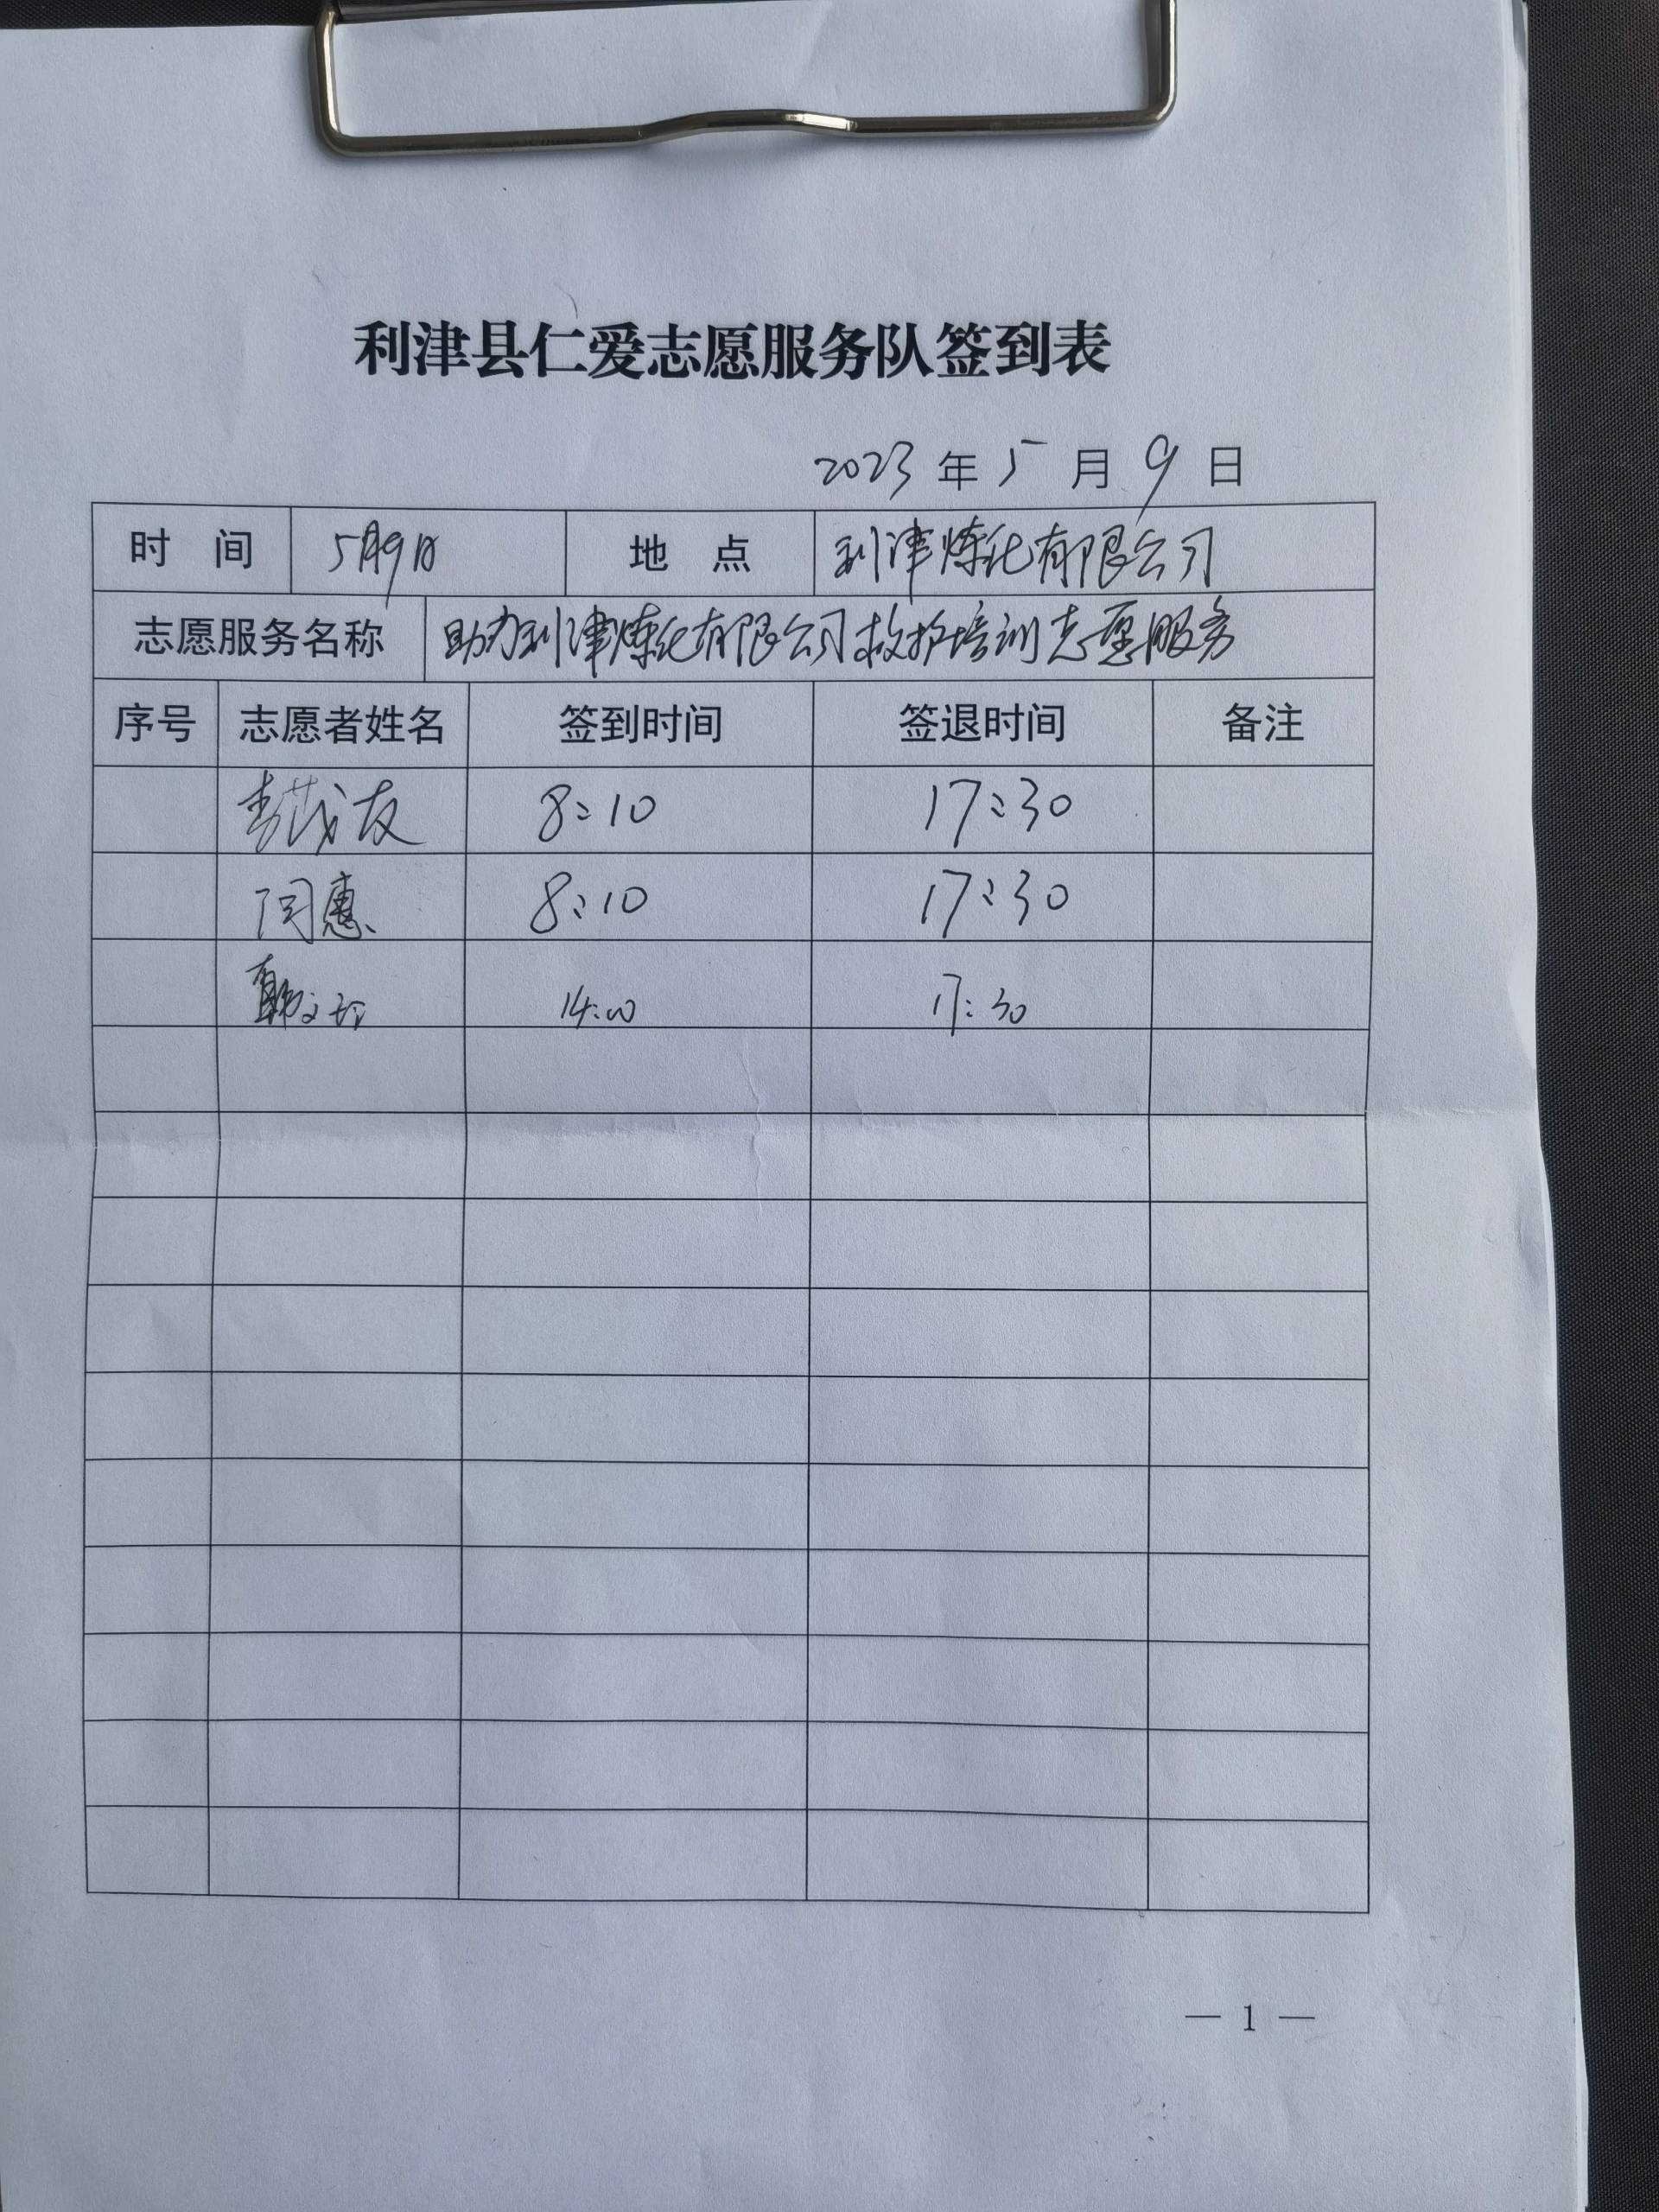 利津县仁爱志愿服务队签到表
2023 年 5 月 9 日
时 间 5月9日 地 点 利津炼化有限公司
志愿服务名称 助力利津炼化有限公司救护培训志愿服务
序号 志愿者姓名 签到时间 签退时间 备注
李茂友 8:10 17:30
闫惠 8:10 17:30
韩文 14:00 17:30
— 1 —